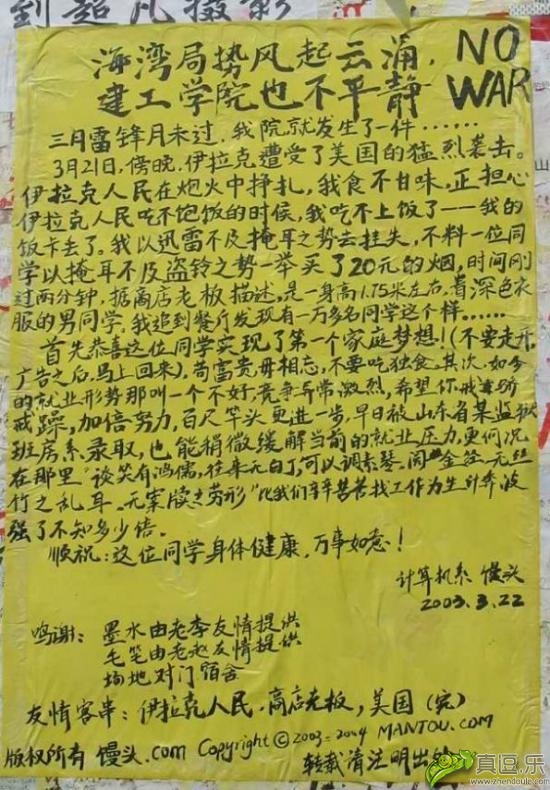 到超凡摄影
海湾局势风起云涌,
建工学院也不平静
NO
WAR
三月雷锋月未过,我院就发生了一件……
3月21日,傍晚,伊拉克遭受了美国的猛烈袭击。
伊拉克人民在炮火中挣扎,我食不甘味,正担心
伊拉克人民吃不饱饭的时候,我吃不上饭了——我的
饭卡丢了。我以迅雷不及掩耳之势去挂失,不料一位同
学以掩耳不及盗铃之势一举买了20元的烟,时间刚
过两分钟,据商店老板描述,是一身高1.75米左右.着深色衣
服的男同学,我追到餐厅发现有一万多名同学这个样……
首先恭喜这位同学实现了第一个家庭梦想!(不要走开
广告之后,马上回来),苟富贵,毋相忘,不要吃独食,其次,如今
的就业形势那叫一个不好,竞争异常激烈,希望你戒骄
戒躁,加倍努力,百尺竿头更进一步,早日被山东省某监狱
班房系录取,也能稍微缓解当前的就业压力,更何况
在那里“谈笑有鸿儒,往来无白丁,可以调素琴,阅金经.无丝
竹之乱耳.无案牍之劳形”比我们辛辛苦苦找工作为生计奔波
强了不知多少倍。
顺祝:这位同学身体健康,万事如意!
计算机系 馒头
2003.3.22
鸣谢:墨水由老李友情提供
毛笔由老赵友情提供
场地对门宿舍
友情客串:伊拉克人民.商店老板,美国(完)
版权所有 馒头.com Copyright©2003-2004 MANTOU.COM
转载请注明出处
真逗.乐
www.zhendoule.com